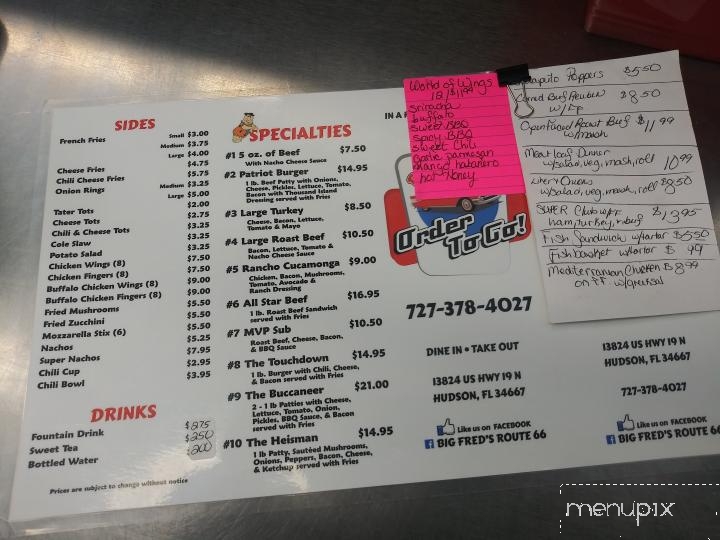 SIDES
French Fries
Small $3.00
Medium $3.75
Large $4.00
Cheese Fries $4.75
Chili Cheese Fries $5.75
Onion Rings Medium $3.25
Large $5.00
Tater Tots $2.00
Cheese Tots $2.75
Chili & Cheese Tots $3.25
Cole Slaw $3.25
Potato Salad $3.25
Chicken Wings (8) $7.50
Chicken Fingers (8) $7.50
Buffalo Chicken Wings (8) $9.00
Buffalo Chicken Fingers (8) $9.00
Fried Mushrooms $5.50
Fried Zucchini $5.50
Mozzarella Stix (6) $5.50
Nachos $5.25
Super Nachos $7.95
Chili Cup $2.95
Chili Bowl $3.95
DRINKS
Fountain Drink $2.75
Sweet Tea $2.50
Bottled Water 2.00
Prices are subject to change without notice
SPECIALTIES
#1 5 oz. of Beef $7.50
With Nacho Cheese Sauce
#2 Patriot Burger $14.95
1 lb. Beef Patty with Onions,
Cheese, Pickles, Lettuce, Tomato,
Bacon with Thousand Island
Dressing served with Fries
#3 Large Turkey $8.50
Cheese, Bacon, Lettuce,
Tomato & Mayo
#4 Large Roast Beef $10.50
Bacon, Lettuce, Tomato &
Nacho Cheese Sauce
#5 Rancho Cucamonga $9.00
Chicken, Bacon, Mushrooms,
Tomato, Avocado &
Ranch Dressing
#6 All Star Beef $16.95
1 lb. Roast Beef Sandwich
served with Fries
#7 MVP Sub $10.50
Roast Beef, Cheese, Bacon,
& BBQ Sauce
#8 The Touchdown $14.95
1 lb. Burger with Chili, Cheese,
& Bacon served with Fries
#9 The Buccaneer $21.00
2 - 1 lb Patties with Cheese,
Lettuce, Tomato, Onion,
Pickles, BBQ Sauce, & Bacon
served with Fries
#10 The Heisman $14.95
1 lb Patty, Sautéed Mushrooms,
Onions, Peppers, Bacon, Cheese,
& Ketchup served with Fries
IN A
World of Wings
12/$11.99
sriracha
buffalo
sweet BBQ
spicy BBQ
sweet chili
garlic parmesan
mango habanero
hot honey
Order
To Go!
727-378-4027
DINE IN • TAKE OUT
13824 US HWY 19 N
HUDSON, FL 34667
Like us on FACEBOOK
BIG FRED'S ROUTE 66
Poppers $5.50
Corned Beef Reuben
w/FF $8.50
Open Faced Roast Beef
w/mash $11.99
Meat Loaf Dinner
w/salad, veg, mash, roll 10.99
Liver & Onions
w/salad, veg, mash, roll $8.50
SUPER Club w/FF
ham, turkey, r. beef $13.95
Fish Sandwich w/tartar $5.50
Fish basket w/tartar $ .99
Mediterranean Chicken $8.99
on FF
13824 US HWY 19 N
HUDSON, FL 34667
727-378-4027
Like us on FACEBOOK
BIG FRED'S ROUTE 66
menupix